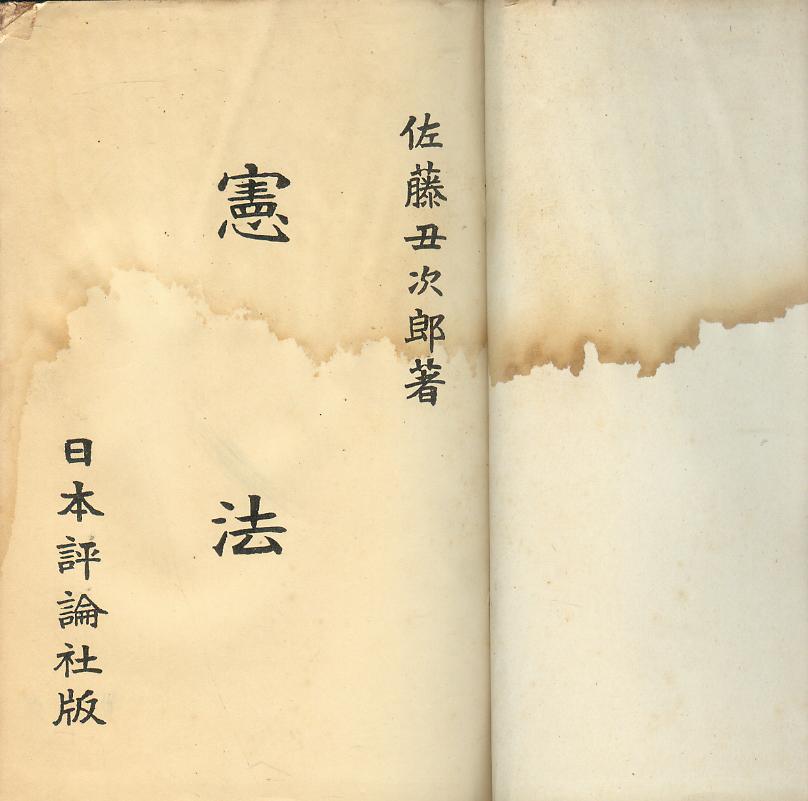 佐藤丑次郎著
憲法
日本評論社版